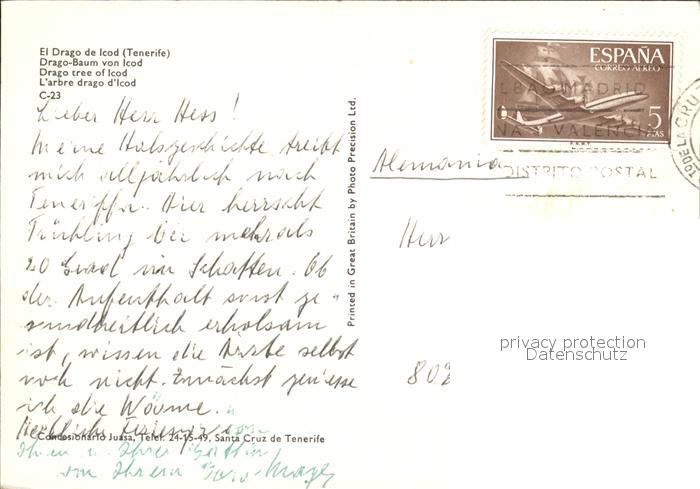 El Drago de Icod (Tenerife)
Drago-Baum von Icod
Drago tree of Icod
L'arbre drago d'Icod
C-23
Lieber Herr Hess!
Meine Halsgeschichte treibt
mich alljährlich nach
Teneriffa. Hier herrscht
Frühling bei mehr als
20 Grad im Schatten. Ob
der Aufenthalt sonst ge-
sundheitlich erholsam
ist, wissen die Ärzte selbst
noch nicht. Zunächst geniesse
ich die Wärme.
Herzliche Feriengrüße
Concesionario Juasa, Telef. 24-15-49, Santa Cruz de Tenerife
Ihnen u. Ihrer Gattin
von Ihrem
Printed in Great Britain by Photo Precision Ltd.
ESPAÑA
CORREO AEREO
5
PTAS
F.N.M.T.
LBAO MADRID
NA VALENCI
DISTRITO POSTAL
TO DE LA CRUZ
Alemania
Herr
privacy protection
Datenschutz
802